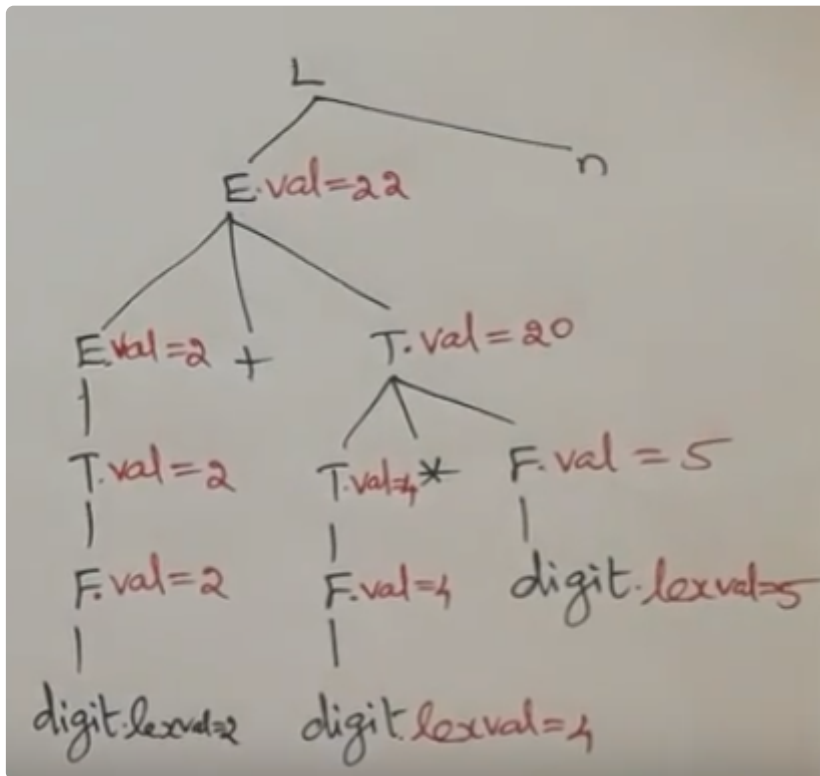 L
E.val=22 n
E.val=2 + T.val=20
T.val=2 T.val=4 * F.val=5
F.val=2 F.val=4 digit.lexval=5
digit.lexval=2 digit.lexval=4